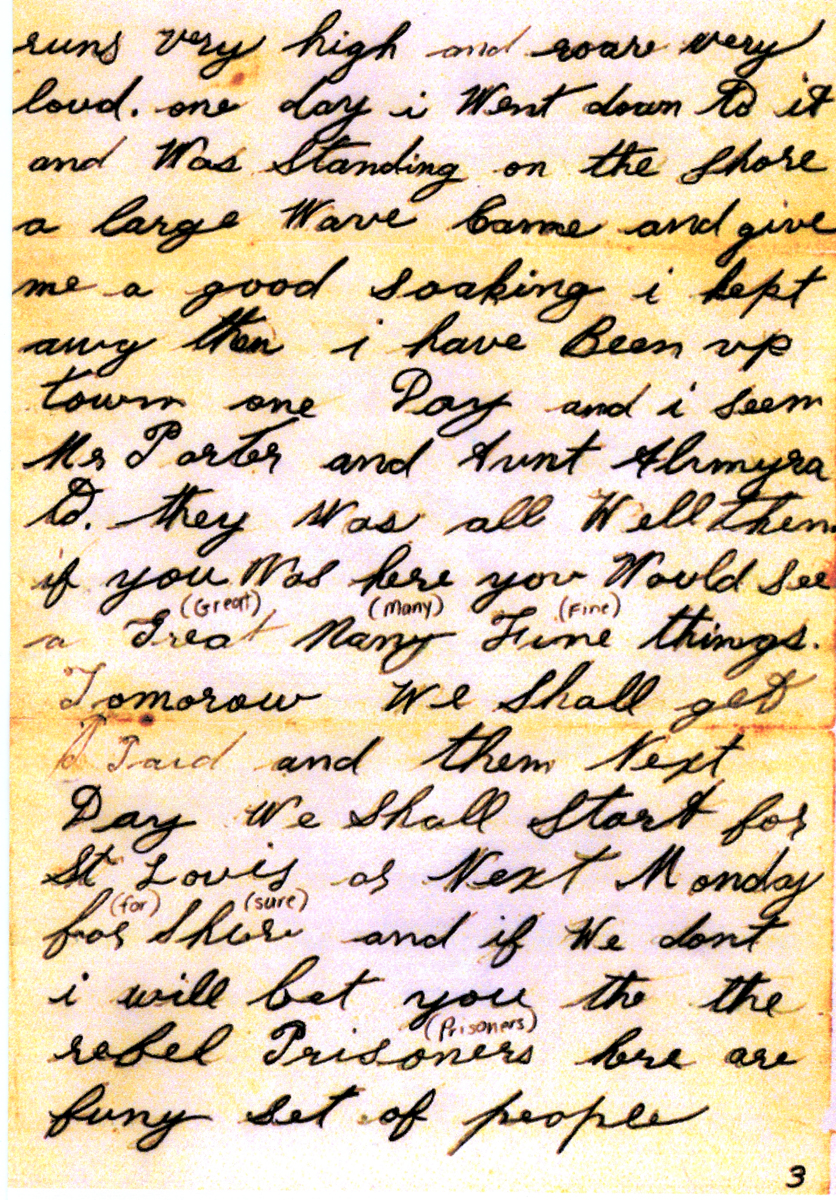 runs very high and roare very
loud. one day i Went down to it
and Was Standing on the Shore
a large Wave Came and give
me a good Soaking i kept
away then i have Been up
town one Day and i Seem
Mr Porter and Aunt Almyra
D. they Was all Well them
if you Was here you Would See
(Great) (Many) (Fine)
a Great Many Fine things.
Tomorow We Shall get
Paid and them Next
Day We Shall Start for
St Louis or Next Monday
(for) (sure)
for Shure and if We dont
i will bet you the the
(Prisoners)
rebel Prisoners here are
funy set of people
3